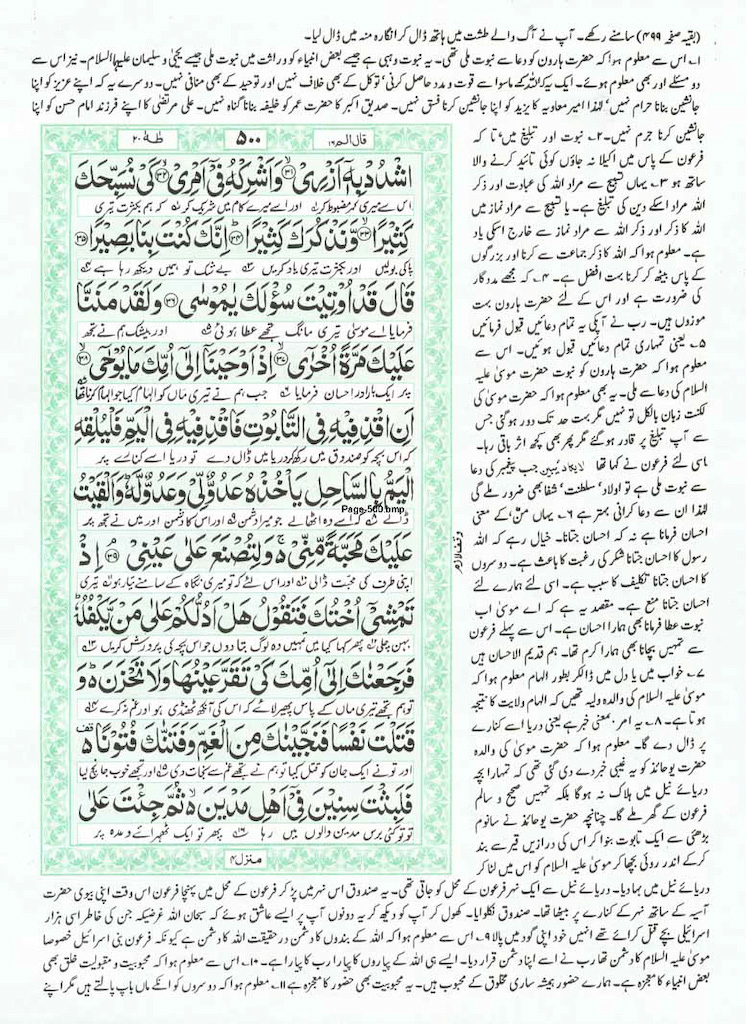 (بقیہ صفحہ ۴۹۹) سامنے رکھے۔ آپ نے آگ والے طشت میں ہاتھ ڈال کر انگارہ منہ میں ڈال لیا۔
۱۔ اس سے معلوم ہوا کہ حضرت ہارون کو دعا سے نبوت ملی تھی۔ یہ نبوت وہبی ہے جیسے بعض انبیاء کو وراثت میں نبوت ملی جیسے یحییٰ و سلیمان علیہما السلام۔ نیز اس سے
دو مسئلے اور بھی معلوم ہوئے۔ ایک یہ کہ اللہ کے ماسوا سے قوت و مدد حاصل کرنی' توکل کے بھی خلاف نہیں اور توحید کے بھی منافی نہیں۔ دوسرے یہ کہ اپنے عزیز کو اپنا
جانشین بنانا حرام نہیں' لہٰذا امیر معاویہ کا یزید کو اپنا جانشین کرنا فسق نہیں۔ صدیق اکبر کا حضرت عمر کو خلیفہ بنانا گناہ نہیں۔ علی مرتضیٰ کا اپنے فرزند امام حسن کو اپنا
قال الم ۱۶
۵۰۰
طٰهٰ ۲۰
اشْدُدْ بِهٖۤ اَزْرِیْ ۳۱ وَاَشْرِكْهُ فِیْۤ اَمْرِیْ ۳۲ كَیْ نُسَبِّحَكَ
اس سے میری کمر مضبوط کر اور اسے میرے کام میں شریک کر کہ ہم بکثرت تیری
كَثِیْرًا ۳۳ وَّنَذْكُرَكَ كَثِیْرًا ۳۴ اِنَّكَ كُنْتَ بِنَا بَصِیْرًا ۳۵
پاکی بولیں اور بکثرت تیری یاد کریں بے شک تو ہمیں دیکھ رہا ہے
قَالَ قَدْ اُوْتِیْتَ سُؤْلَكَ یٰمُوْسٰی ۳۶ وَلَقَدْ مَنَنَّا
فرمایا اے موسیٰ تیری مانگ تجھے عطا ہوئی اور بیشک ہم نے تجھ
عَلَیْكَ مَرَّةً اُخْرٰۤی ۳۷ اِذْ اَوْحَیْنَاۤ اِلٰۤی اُمِّكَ مَا یُوْحٰۤی ۳۸
پر ایک بار اور احسان فرمایا جب ہم نے تیری ماں کو الہام کیا جو الہام کرنا تھا
اَنِ اقْذِفِیْهِ فِی التَّابُوْتِ فَاقْذِفِیْهِ فِی الْیَمِّ فَلْیُلْقِهِ
کہ اس بچہ کو صندوق میں رکھ کر دریا میں ڈال دے تو دریا اسے کنارے پر
الْیَمُّ بِالسَّاحِلِ یَاْخُذْهُ عَدُوٌّ لِّیْ وَعَدُوٌّ لَّهٗ ؕ وَاَلْقَیْتُ
ڈالے کہ اسے وہ اٹھالے جو میرا دشمن اور اس کا دشمن اور میں نے تجھ پر
Page-500.bmp
عَلَیْكَ مَحَبَّةً مِّنِّیْ ۚ۬ وَلِتُصْنَعَ عَلٰی عَیْنِیْ ۳۹ اِذْ
اپنی طرف کی محبت ڈالی اور اس لئے کہ تو میری نگاہ کے سامنے تیار ہو تیری
تَمْشِیْۤ اُخْتُكَ فَتَقُوْلُ هَلْ اَدُلُّكُمْ عَلٰی مَنْ یَّكْفُلُهٗ ؕ
بہن چلی پھر کہا کیا میں تمہیں وہ لوگ بتا دوں جو اس بچہ کی پرورش کریں
فَرَجَعْنٰكَ اِلٰۤی اُمِّكَ كَیْ تَقَرَّ عَیْنُهَا وَلَا تَحْزَنَ ؕ۬ وَ
تو ہم تجھے تیری ماں کے پاس پھیر لائے کہ اس کی آنکھ ٹھنڈی ہو اور غم نہ کرے
قَتَلْتَ نَفْسًا فَنَجَّیْنٰكَ مِنَ الْغَمِّ وَفَتَنّٰكَ فُتُوْنًا ۫۬
اور تو نے ایک جان کو قتل کیا تو ہم نے تجھے غم سے نجات دی اور تجھے خوب جانچ لیا
فَلَبِثْتَ سِنِیْنَ فِیْۤ اَهْلِ مَدْیَنَ ۬ۙ ثُمَّ جِئْتَ عَلٰی
تو تو کئی برس مدین والوں میں رہا پھر تو ایک ٹھہرائے وعدہ پر
منزل ۴
وقف لازم
جانشین کرنا جرم نہیں۔ ۲۔ نبوت اور تبلیغ میں' تا کہ
فرعون کے پاس میں اکیلا نہ جاؤں کوئی تائید کرنے والا
ساتھ ہو ۳۔ یہاں تسبیح سے مراد اللہ کی عبادت اور ذکر
اللہ مراد اسکے دین کی تبلیغ ہے۔ یا تسبیح سے مراد نماز میں
اللہ کا ذکر اور ذکر اللہ سے مراد نماز سے خارج اسکی یاد
ہے۔ معلوم ہوا کہ اللہ کا ذکر جماعت سے کرنا اور بزرگوں
کے پاس بیٹھ کر کرنا بہت افضل ہے۔ ۴۔ کہ مجھے مددگار
کی ضرورت ہے اور اس کے لئے حضرت ہارون بہت
موزوں ہیں۔ رب نے آپکی یہ تمام دعائیں قبول فرمائیں
۵۔ یعنی تمہاری تمام دعائیں قبول ہوئیں۔ اس سے
معلوم ہوا کہ حضرت ہارون کو نبوت حضرت موسیٰ علیہ
السلام کی دعا سے ملی۔ یہ بھی معلوم ہوا کہ حضرت موسیٰ کی
لکنت زبان بالکل تو نہیں مگر بہت حد تک دور ہو گئی جس
سے آپ تبلیغ پر قادر ہو گئے مگر پھر بھی کچھ اثر باقی رہا۔
اسی لئے فرعون نے کہا تھا لایکاد یبین جب پیغمبر کی دعا
سے نبوت ملی ہے تو اولاد' سلطنت' شفا بھی ضرور ملے گی
لہٰذا ان سے دعا کرانی بہتر ہے ۶۔ یہاں منّ کے معنی
احسان فرمانا ہے نہ کہ احسان جتانا۔ خیال رہے کہ اللہ
رسول کا احسان جتانا شکر کی رغبت کا باعث ہے۔ دوسروں
کا احسان جتانا تکلیف کا سبب ہے۔ اسی لئے ہمارے لئے
احسان جتانا منع ہے۔ مقصد یہ ہے کہ اے موسیٰ اب
نبوت عطا فرمانا بھی ہمارا احسان ہے۔ اس سے پہلے فرعون
سے تمہیں بچانا بھی ہمارا کرم تھا۔ ہم قدیم الاحسان ہیں
۷۔ خواب میں یا دل میں ڈال کر بطور الہام معلوم ہوا کہ
موسیٰ علیہ السلام کی والدہ ولیہ تھیں کہ الہام ولایت کا نتیجہ
ہوتا ہے۔ ۸۔ یہ امر' بمعنی خبر ہے یعنی دریا اسے کنارے
پر ڈال دے گا۔ معلوم ہوا کہ حضرت موسیٰ کی والدہ
حضرت یوحانذ کو یہ غیبی خبر دے دی گئی تھی کہ تمہارا بچہ
دریائے نیل میں ہلاک نہ ہو گا بلکہ تمہیں صحیح و سالم
فرعون کے گھر ملے گا۔ چنانچہ حضرت یوحانذ نے سانوم
بڑھئی سے ایک تابوت بنوا کر اس کی درازیں قیر سے بند
کر کے اندر روئی بچھا کر موسیٰ علیہ السلام کو اس میں لٹا کر
دریائے نیل میں بہا دیا۔ دریائے نیل سے ایک نہر فرعون کے محل کو جاتی تھی۔ یہ صندوق اس نہر میں پڑ کر فرعون کے محل میں پہنچا فرعون اس وقت اپنی بیوی حضرت
آسیہ کے ساتھ نہر کے کنارے پر بیٹھا تھا۔ صندوق نکلوایا۔ کھول کر آپ کو دیکھ کر یہ دونوں آپ پر ایسے عاشق ہوئے کہ سبحان اللہ غرضیکہ جن کی خاطر اسی ہزار
اسرائیلی بچے قتل کرائے تھے انہیں خود اپنی گود میں پالا ۹۔ اس سے معلوم ہوا کہ اللہ کے بندوں کا دشمن در حقیقت اللہ کا دشمن ہے کیونکہ فرعون بنی اسرائیل خصوصا
موسیٰ علیہ السلام کا دشمن تھا رب نے اسے اپنا دشمن قرار دیا۔ ایسے ہی اللہ کے پیاروں کا پیارا رب کا پیارا ہے۔ ۱۰۔ اس سے معلوم ہوا کہ محبوبیت و مقبولیت خلق بھی
بعض انبیاء کا معجزہ ہے۔ ہمارے حضور ہمیشہ ساری مخلوق کے محبوب ہیں۔ یہ محبوبیت بھی حضور کا معجزہ ہے ۱۱۔ معلوم ہوا کہ دوسروں کو انکے ماں باپ پالتے ہیں مگر اپنے